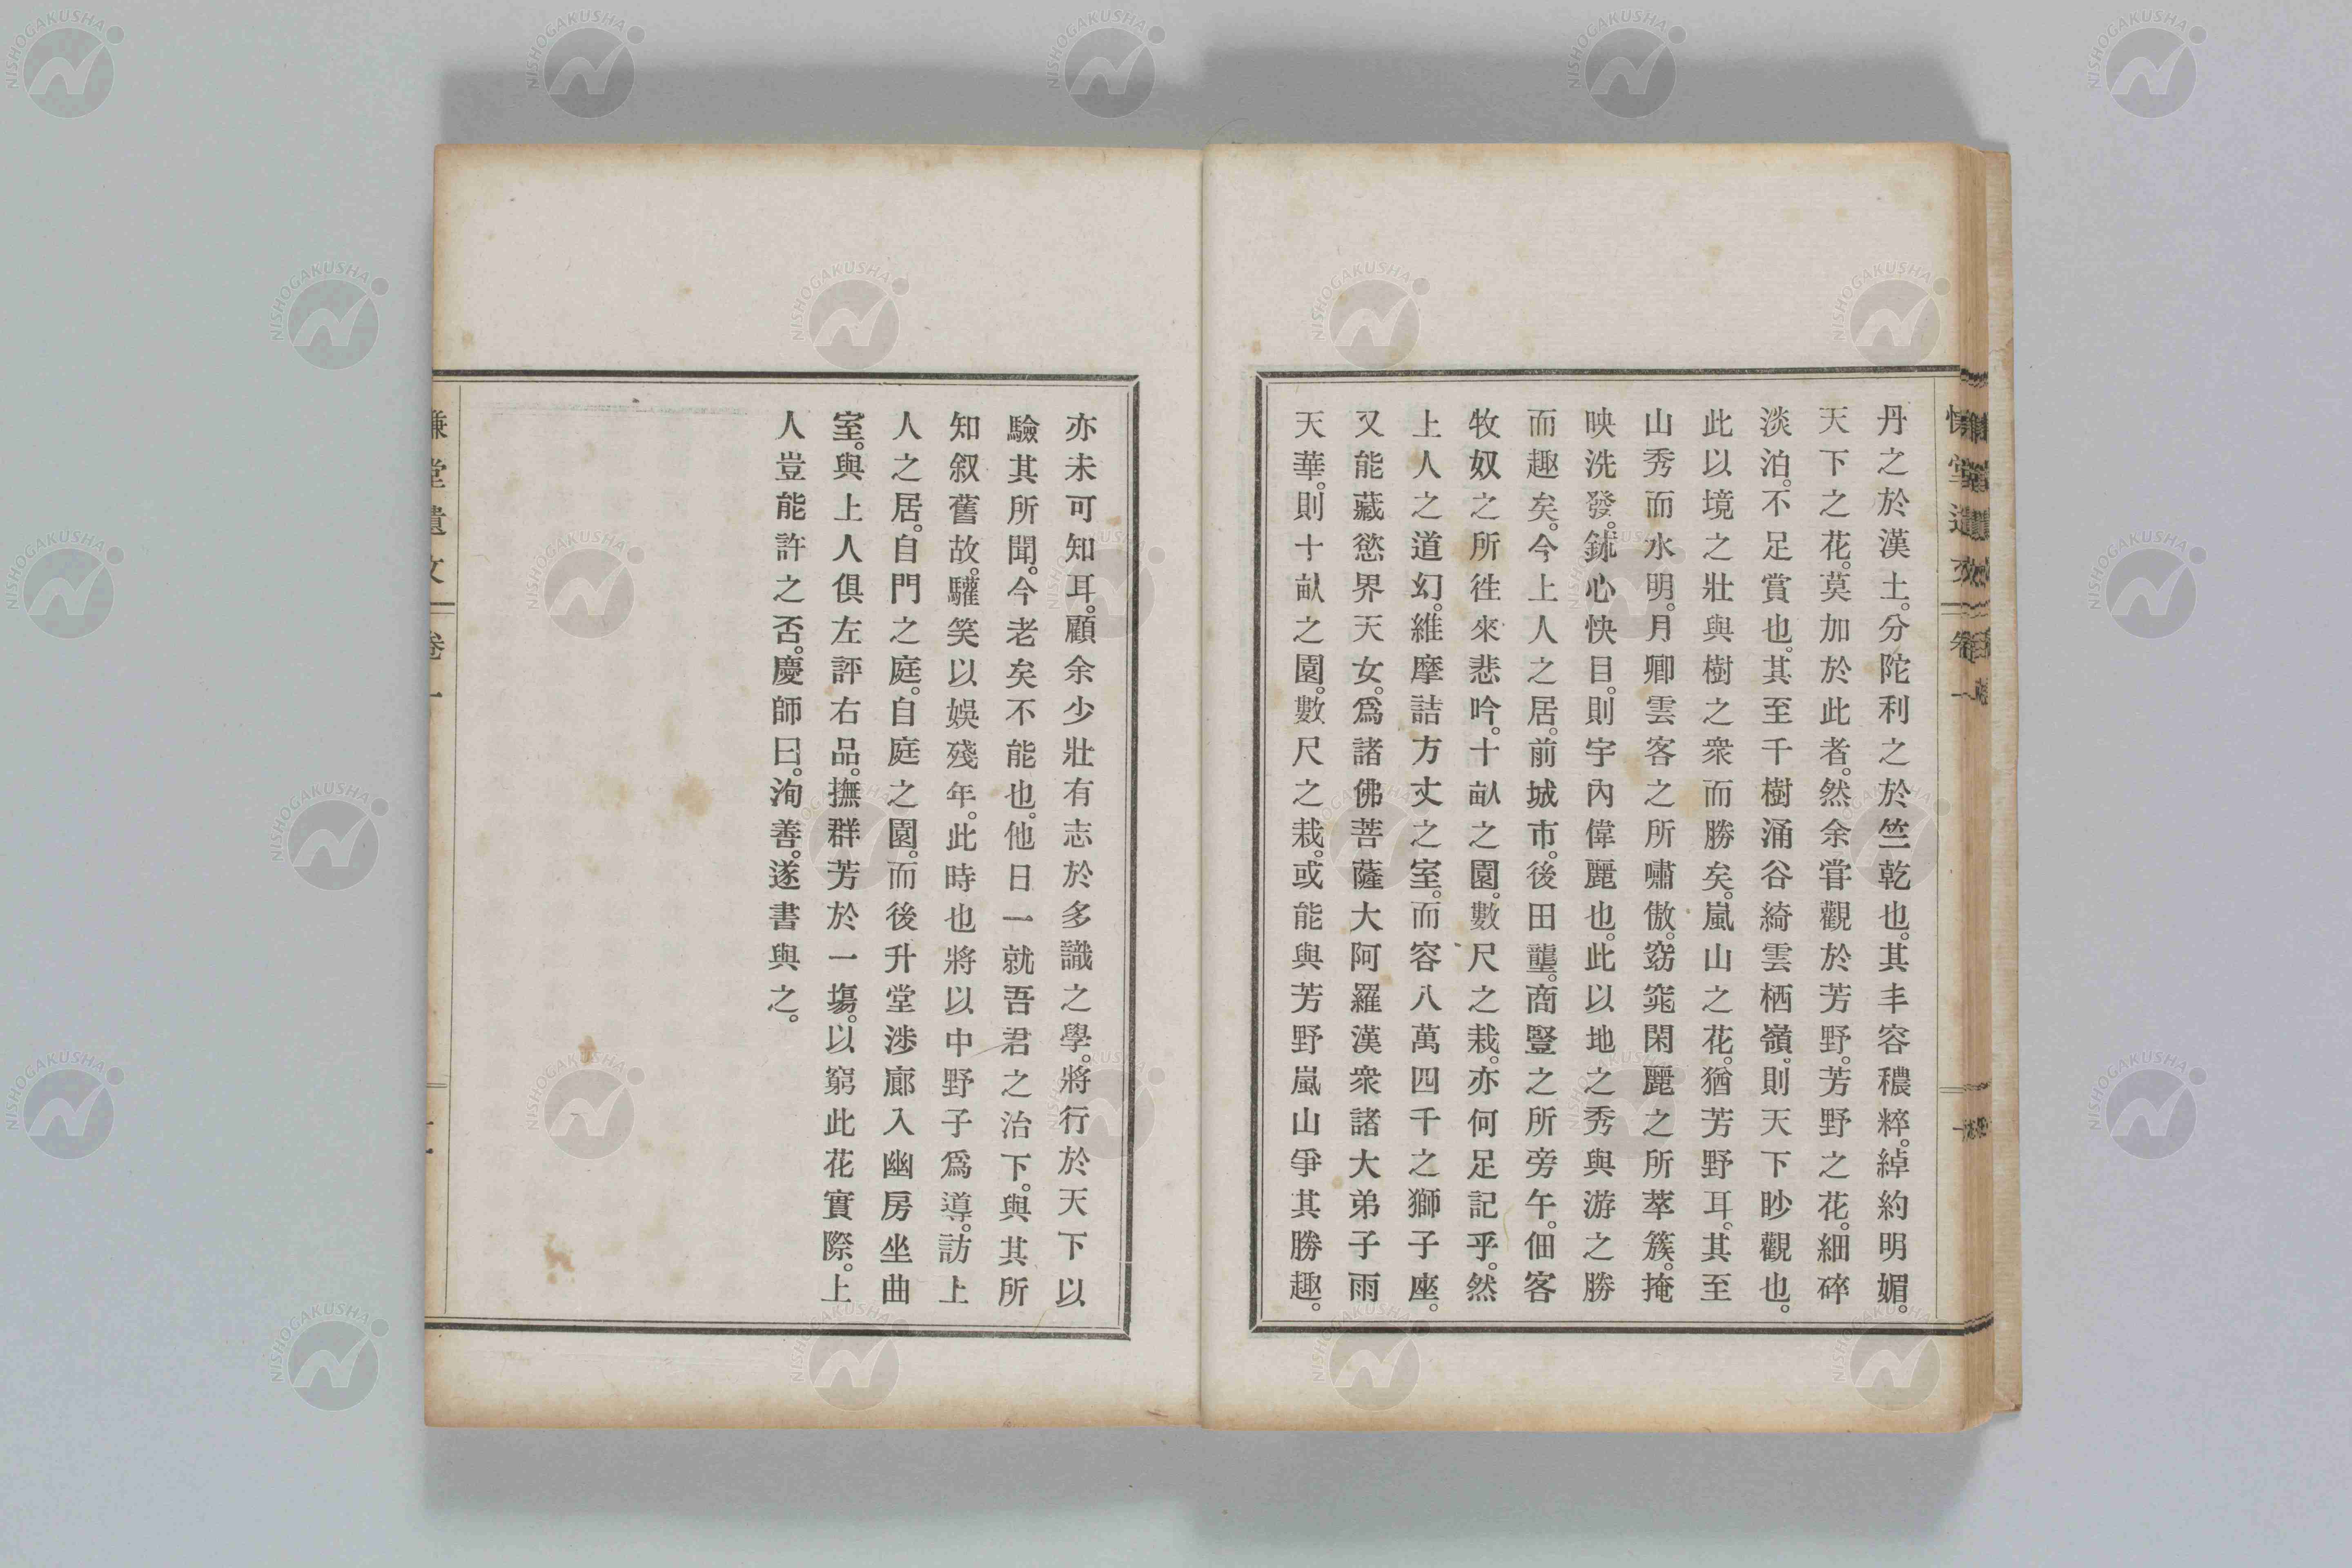 丹之於漢土。分陀利之於竺乾也。其丰容。穠粹。綽約明媚。
天下之花。莫加於此者。然余甞觀於芳野。芳野之花。細碎
淡泊。不足賞也。其至千樹涌谷綺雲栖嶺。則天下眇觀也。
此以境之壯與樹之衆而勝矣。嵐山之花。猶芳野耳。其至
山秀而水明。月卿雲客之所嘯傲。窈窕閑麗之所萃簇。掩
映洗發。鉥心怏目。則宇內偉麗也。此以地之秀與游之勝
而趣矣。今上人之居。前城市。後田壟。商豎之所旁午。佃客
牧奴之所徃來悲吟。十畝之園。數尺之栽。亦何足記乎。然
上人之道幻。維摩詰方丈之室。而容八萬四千之獅子座。
又能藏慾界天女。爲諸佛菩薩大阿羅漢衆諸大弟子雨
天華。則十畝之園。數尺之栽。或能與芳野嵐山爭其勝趣。
亦未可知耳。顧余少壯有志於多識之學。將行於天下以
驗其所聞。今老矣不能也。他日一就吾君之治下。與其所
知叙舊故。驩笑以娛殘年。此時也將以中野子爲導。訪上
人之居。自門之庭。自庭之園。而後升堂涉廊入幽房坐曲
室。與上人俱左評右品。撫群芳於一塲。以窮此花實際。上
人豈能許之否。慶師曰。洵善。遂書與之。
慊堂遺文
卷一
NISHOGAKUSHA